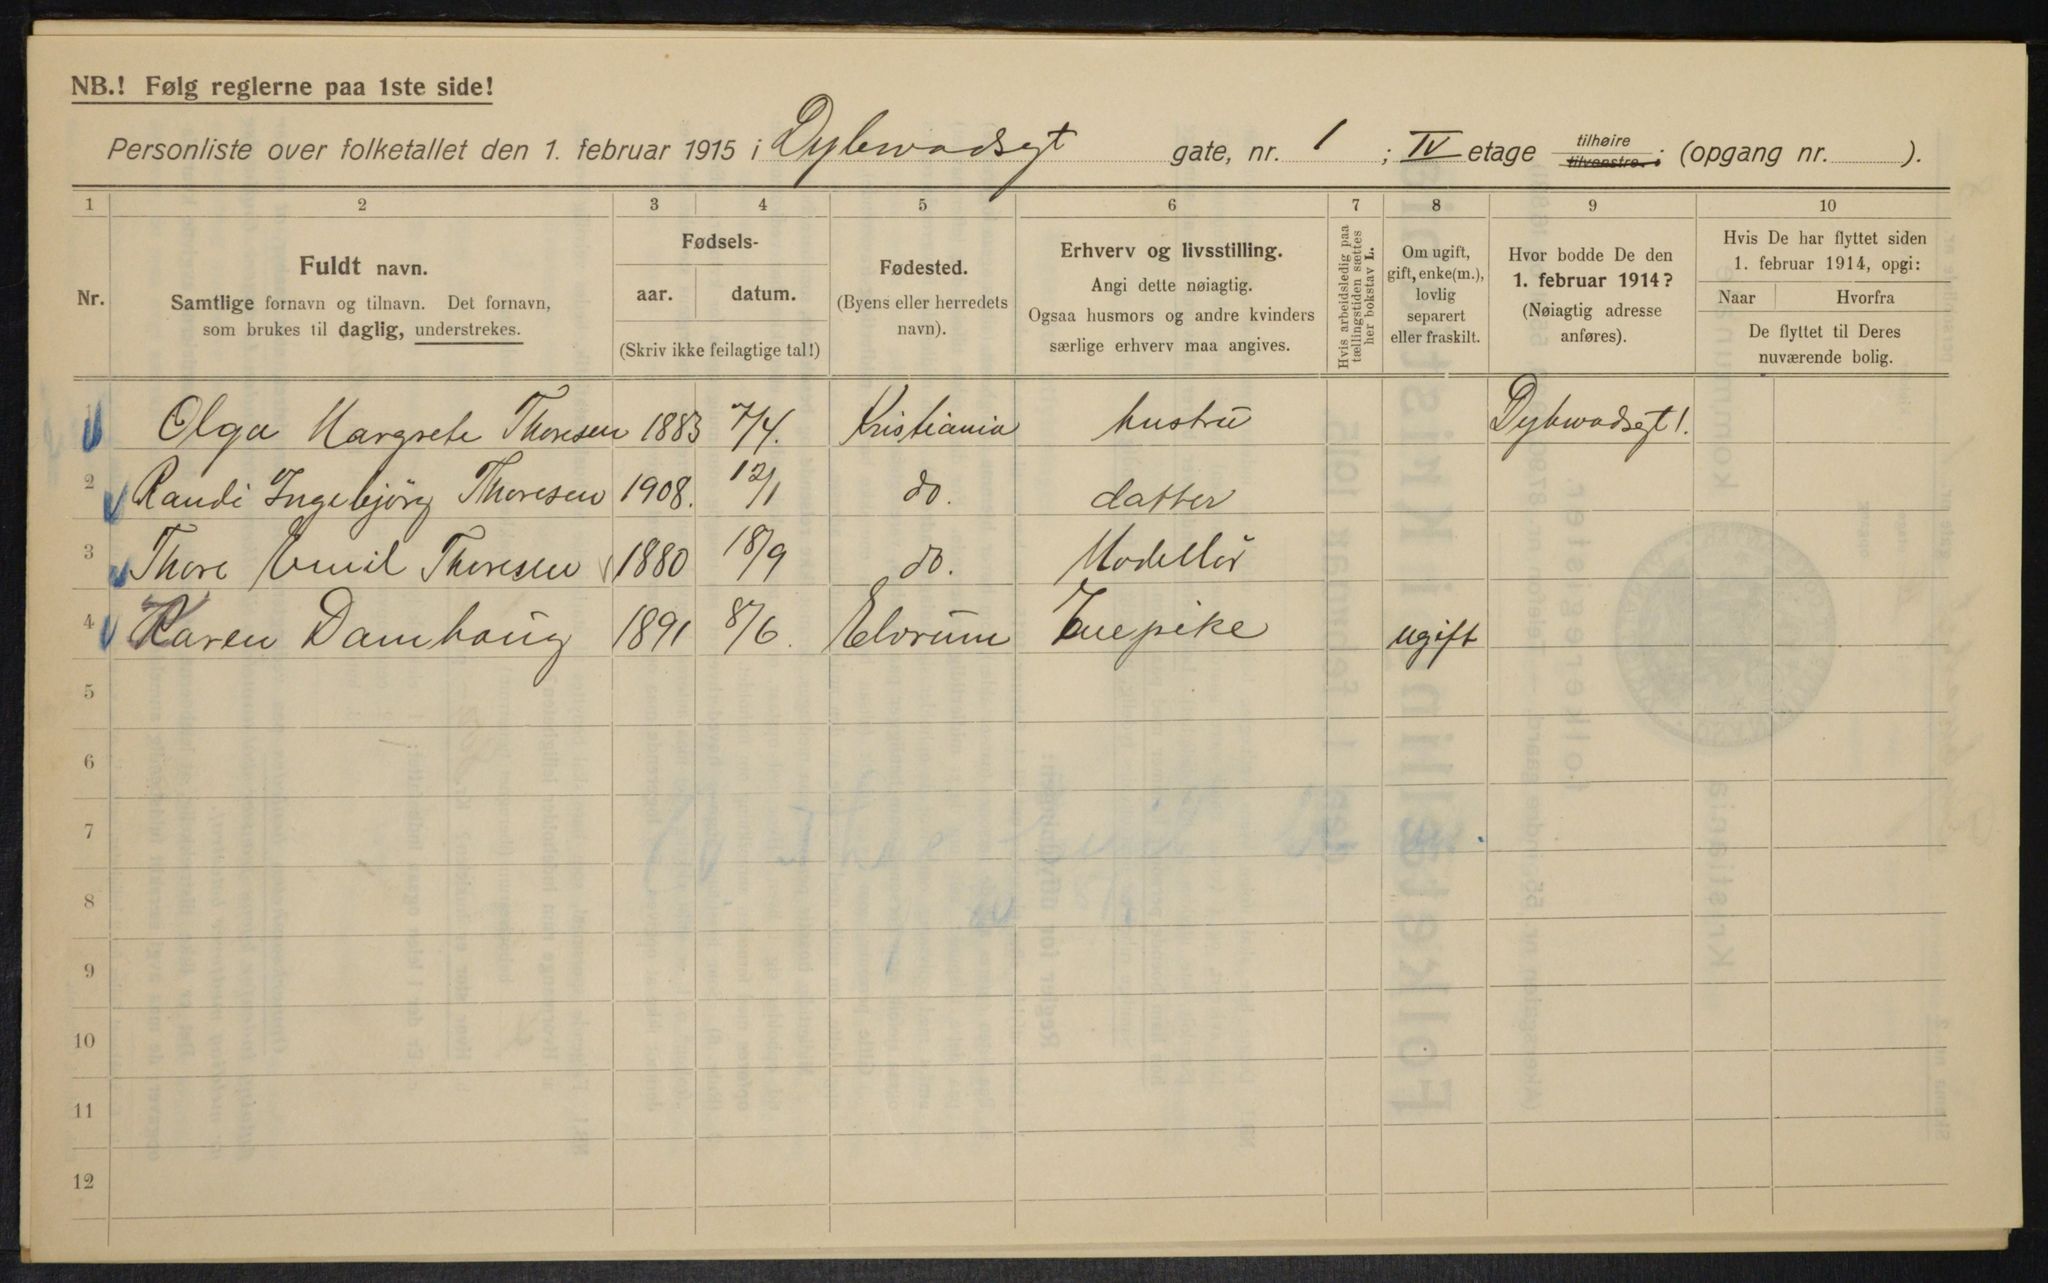 NB.! Følg reglerne paa 1ste side!
Personliste over folketallet den 1. februar 1915 i Dybwadsgt gate, nr. 1 ; IV etage tilhøire tilvenstre ; (opgang nr. ).
1 2 3 4 5 6 7 8 9 10
Nr.
Fuldt navn.
Samtlige fornavn og tilnavn. Det fornavn,
som brukes til daglig, understrekes.
Fødsels-
aar. datum.
(Skriv ikke feilagtige tal!)
Fødested.
(Byens eller herredets
navn).
Erhverv og livsstilling.
Angi dette nøiagtig.
Ogsaa husmors og andre kvinders
særlige erhverv maa angives.
Hvis arbeidsledig paa
tællingstiden sættes
her bokstav L.
Om ugift,
gift, enke(m.),
lovlig
separert
eller fraskilt.
Hvor bodde De den
1. februar 1914?
(Nøiagtig adresse
anføres).
Hvis De har flyttet siden
1. februar 1914, opgi:
Naar Hvorfra
De flyttet til Deres
nuværende bolig.
1 Olga Margrete Thoresen 1883 7/4. Kristiania hustru Dybwadsgt 1.
2 Randi Ingebjörg Thoresen 1908. 12/1 do. datter
3 Thore Emil Thoresen 1880 18/9 do. Modellör
4 Karen Damhaug 1891 8/6. Elvrum Enepike ugift
5
6
7
8
9
10
11
12